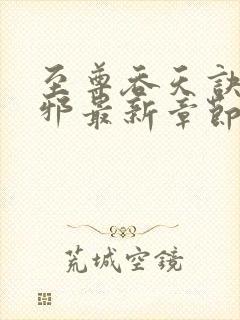 至尊吞天诀
邪最新章节
荒城空镜